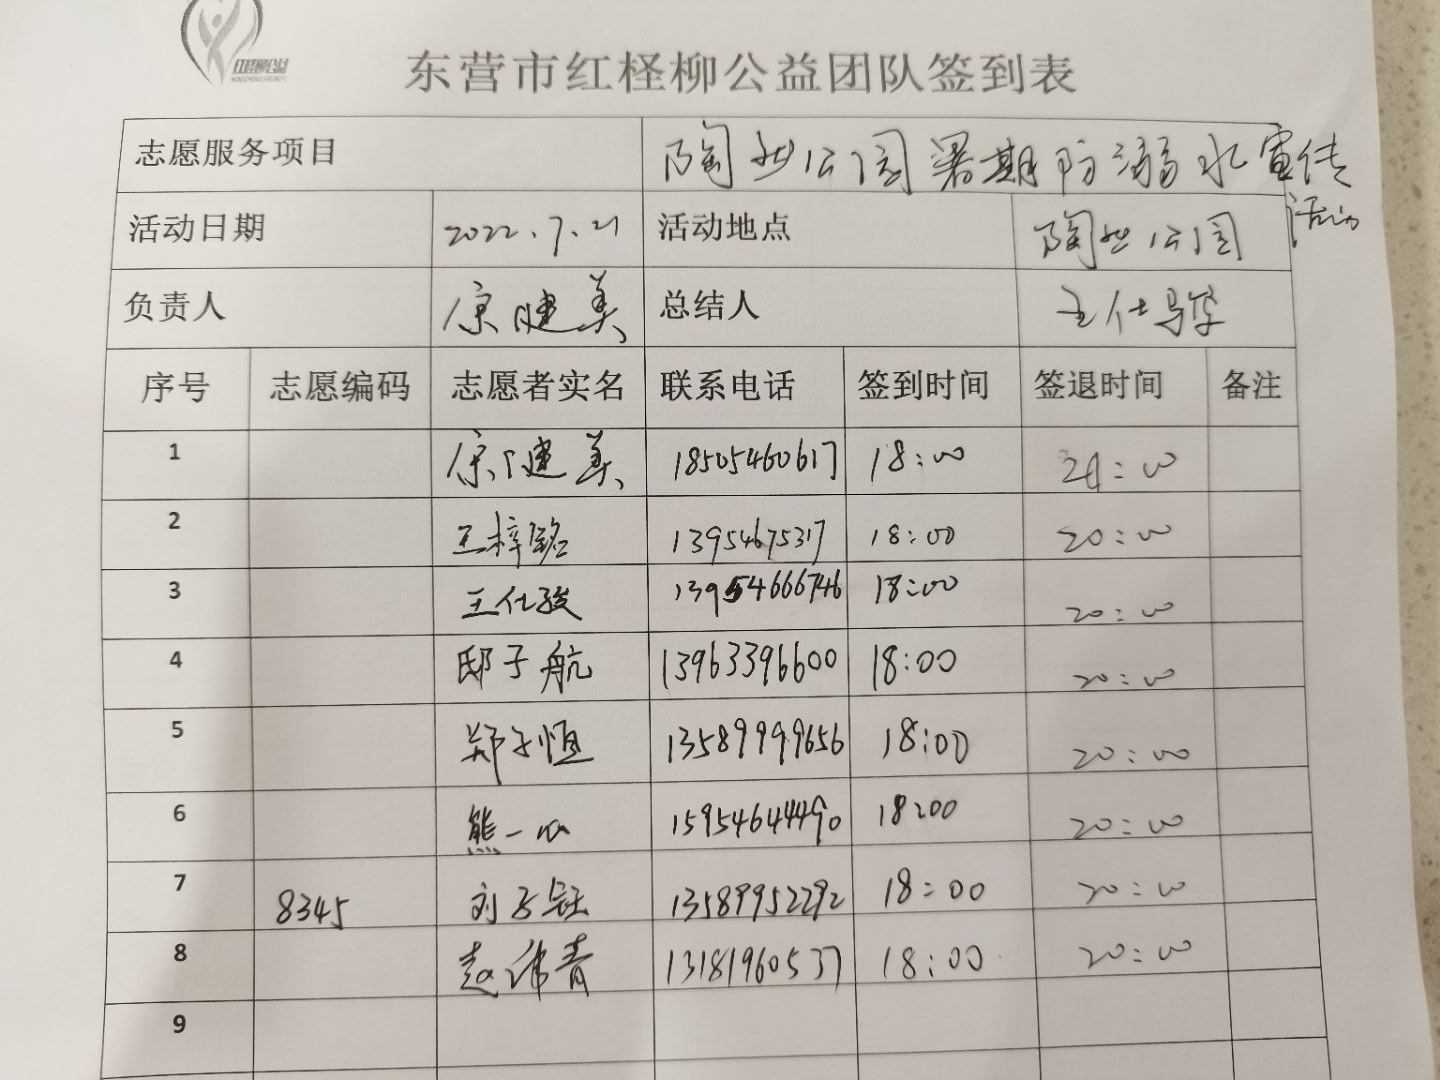 红柽柳公益
东营市红柽柳公益团队签到表
志愿服务项目 陶然公园暑期防溺水宣传
活动
活动日期 2022.7.21 活动地点 陶然公园
负责人 康健美 总结人 王仕骏
序号 志愿编码 志愿者实名 联系电话 签到时间 签退时间 备注
1 康健美 18505460617 18:00
2 王梓铭 13954675317 18:00 20:00
3 王仕骏 13954666746 18:00 20:00
4 邸子航 13963396600 18:00 20:00
5 郑子恒 13589999656 18:00 20:00
6 熊一 15954644490 18:00 20:00
7 8345 刘子钰 13589952292 18:00 20:00
8 赵沛青 13181960537 18:00 20:00
9